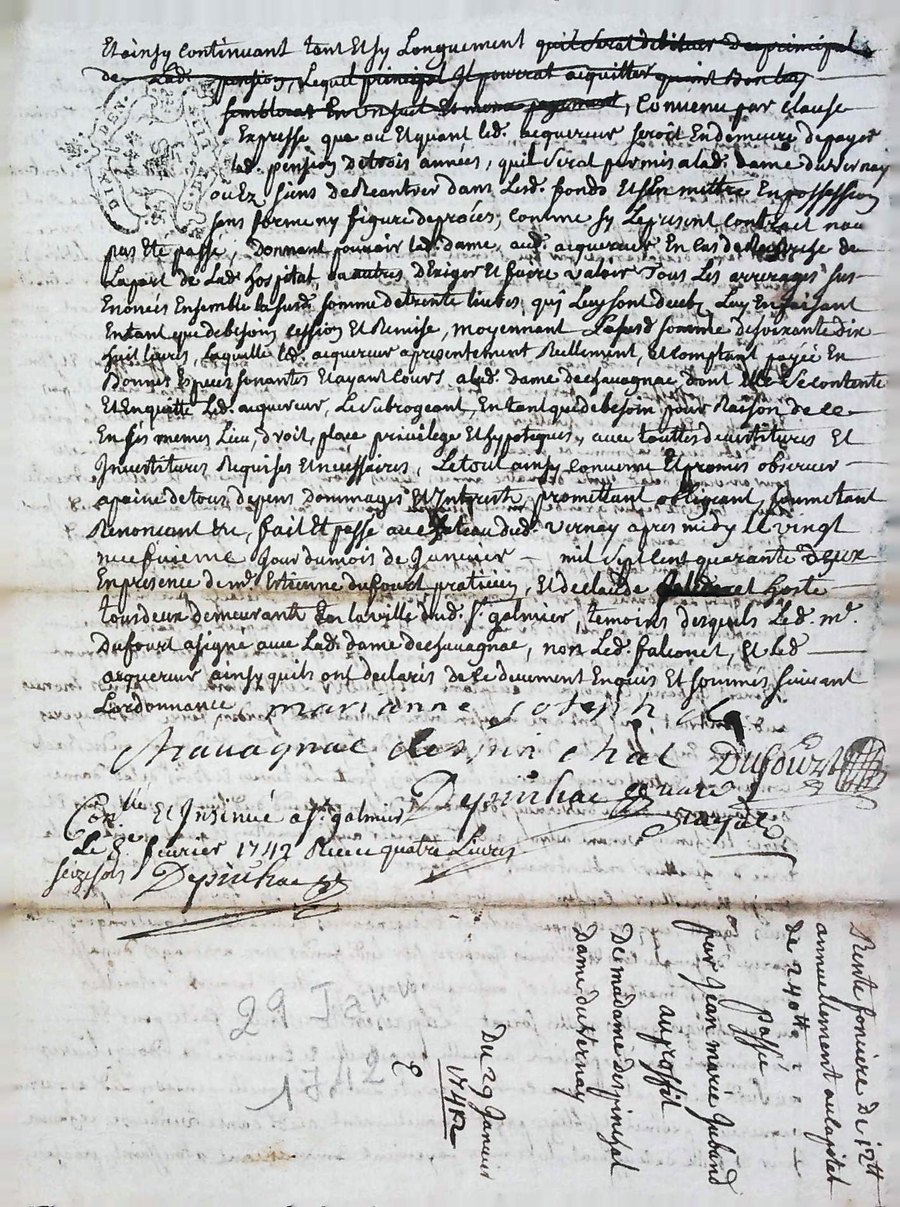 Et ainsy continuant tant Et sy Longuement quil serat debiteur du principal
de lad. pension, Lequel principal Il pourrat aquitter quant Bon luy
semblerat En un seul Et meme payement, Convenu par clause
Expresse que ou Et quant led. acquereur seroit En demeure de payer
lad. pension de trois années, quil serat permis a lad. dame du vernay
ou Ez siens de Reantrer dans Lesd. fonds Et sen mettre En possession
sans forme ny figure de proces, comme sy Le present contract nau
pas ete passe, Donnant pouvoir lad. dame aud. acquereur En cas de Reprise de
La part de Lad. hospital, ou autres d'Eriger Et faire valoir Tous Les arrerages sus
Enoncés Ensemble la susd. somme de trente livres, qui Luy sont deubz Luy En faisant
Entant que de besoin cession Et Remise, moyennant La susd somme de soixante dix
huit livres, laquelle led. acquereur a presentement Reellement, et comptant payée En
Bonnes Especes sonantes Et ayant Cours, a lad. dame de chavagnac, dont Elle se contante
Et En quitte Led. acquereur, Le subrogeant, En tant que de besoin pour Raison de ce
En ses memes Lieu, droit, place privilege Et hypoteques, avec touttes devestitures Et
Investitures Requises et necessaires, Le tout ainsy convenu Et promis observer
a peine de tous depens dommages Et Interests, promettant obligeant, soumetant
Renoncant &c, fait Et passe au chateau dud. Vernay apres midy le vingt
neufvieme Jour du mois de Janvier mil sept cent quarante deux
En presence de mr. Estienne dufourt praticien, Et de claude hoste
tous deux demeurants En la ville dud. st. galmier, temoins desquels Led. mr.
Dufourt a signe avec Lad. dame de chavagnac, non Led. falconet, Et led
acquereur ainsy quils ont declares de ce deuement Enquis Et sommés suivant
Lordonnance, marianne joseph de
Chavagnac despinchal Dufourt
Depinhac
Conllé Et Insinué a st. galmier
Le 8e fevrier 1742 Receu quatre Livres
seize sols Depinhac
Rente fonciere de 12tt
annuellement au capital
de 240tt
passé
par Jean marie Juband
au proffit
De madame despinchal
Dame du Vernay
Du 29 Janvier
1742
29 Janv
1742